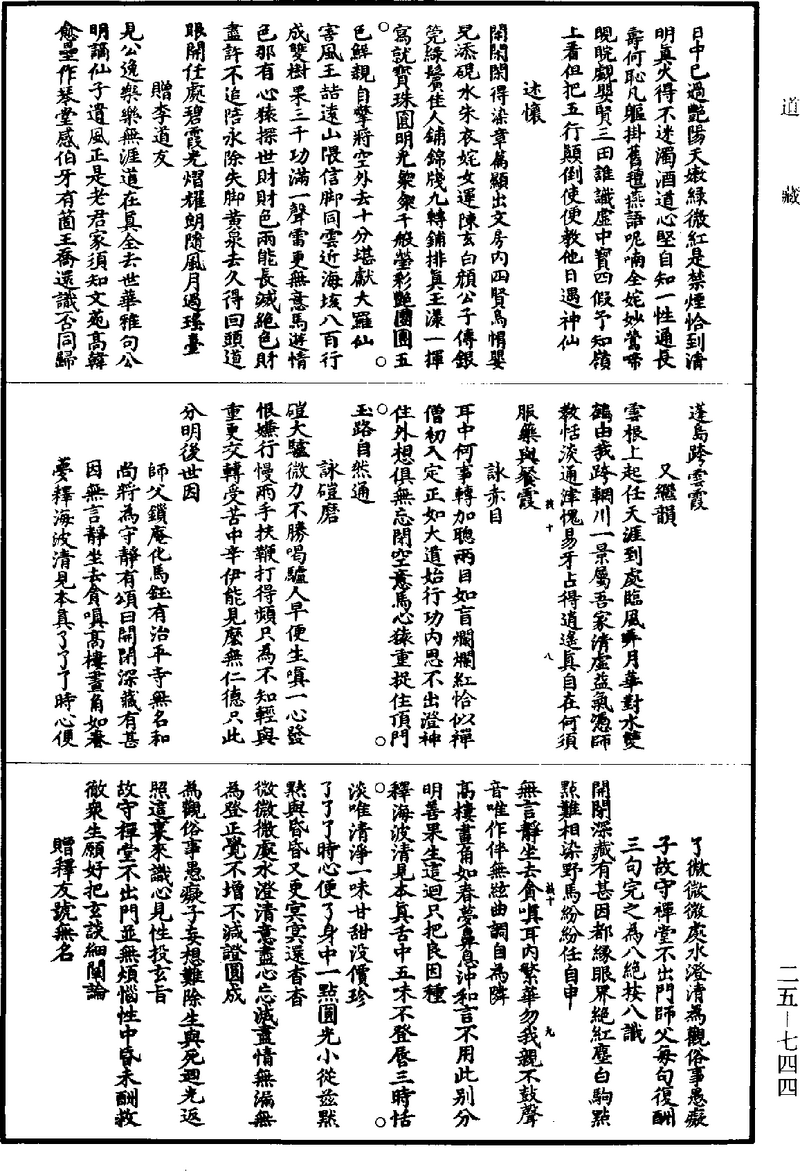 道藏
日中已過艷陽天嫩綠微紅是禁煙恰到清
明真火得不迷濁酒道心堅自知一性通長
壽何恥凡軀掛舊氊燕語呢喃全姹妙鶯啼
睍睆覷嬰賢三田誰識虛中寶四假予知嶺
上看但把五行顛倒使便教他日遇神仙
述懷
閑閑閑得染章萬顯出文房內四賢烏帽嬰
兒添硯水朱衣姹女運陳玄白顏公子傳銀
筦綠鬢佳人鋪錦牋九轉鋪排真玉漾一揮
寫就寶珠圓明光粲粲千般瑩彩艷團團五
色鮮親自擎將空外去十分堪獻大羅仙
害風王喆遠山隈信脚同雲近海垓八百行
成雙樹果三千功滿一聲雷更無意馬遊情
色那有心猿探世財財色兩能長滅絕色財
盡許不追陪永除失脚黃泉去久得回頭道
眼開任處碧霞光熠耀朗隨風月過瑤臺
贈李道友
見公逸樂樂無涯道在真全去世華雅句公
明謫仙子遺風正是老君家須知文苑高韓
愈壘作琴堂感伯牙有箇王喬還識否同歸
蓬島跨雲霞
又繼韻
雲根上起任天涯到處臨風弄月華對水雙
鶴由我跨輞川一景屬吾家清虛益氣憑師
敎恬淡通津愧易牙占得逍遙真自在何須
服藥與餐霞
詠赤目
耳中何事轉加聰兩目如盲爛爛紅恰似禪
僧初入定正如大道始行功內思不出澄神
住外想俱無忘閉空意馬心猿重捉住頂門
玉路自然通
詠磑磨
磑大驢微力不勝喝驢人早便生嗔一心發
恨嫌行慢兩手扶鞭打得頻只為不知輕與
重更交轉受苦中辛伊能見麼無仁德只此
分明後世因
師父鎖庵化馬鈺有治平寺無名和
尚將為守靜有頌曰開閉深藏有甚
因無言靜坐去貪嗔高樓畫角如春
夢釋海波清見本真了了了時心便
了微微微處水澄清為觀俗事愚癡
子故守禪堂不出門師父每句復酬
三句完之為八絕按八識
開閉深藏有甚因都緣眼界絕紅塵白駒點
點難相染野馬紛紛任自申
無言靜坐去貪嗔耳內繁華勿我親不鼓聲
音唯作伴無絃曲調自為隣
高樓畫角如春夢鼻息沖和言不用此別分
明善果生這迴只把良因種
釋海波清見本真舌中五味不登唇三時恬
淡唯清淨一味甘甜沒價珍
了了了時心便了身中一點圓光小從茲黙
黙與昏昏又更冥冥還杳杳
微微微處水澄清意盡心忘滅盡情無漏無
為登正覺不增不減證圓成
為觀俗事愚癡子妄想難除生與死迴光返
照這裏來識心見性投玄旨
故守禪堂不出門並無煩惱性中昏未酬救
徹衆生願好把玄談細闡論
贈釋友號無名
二五－七四四